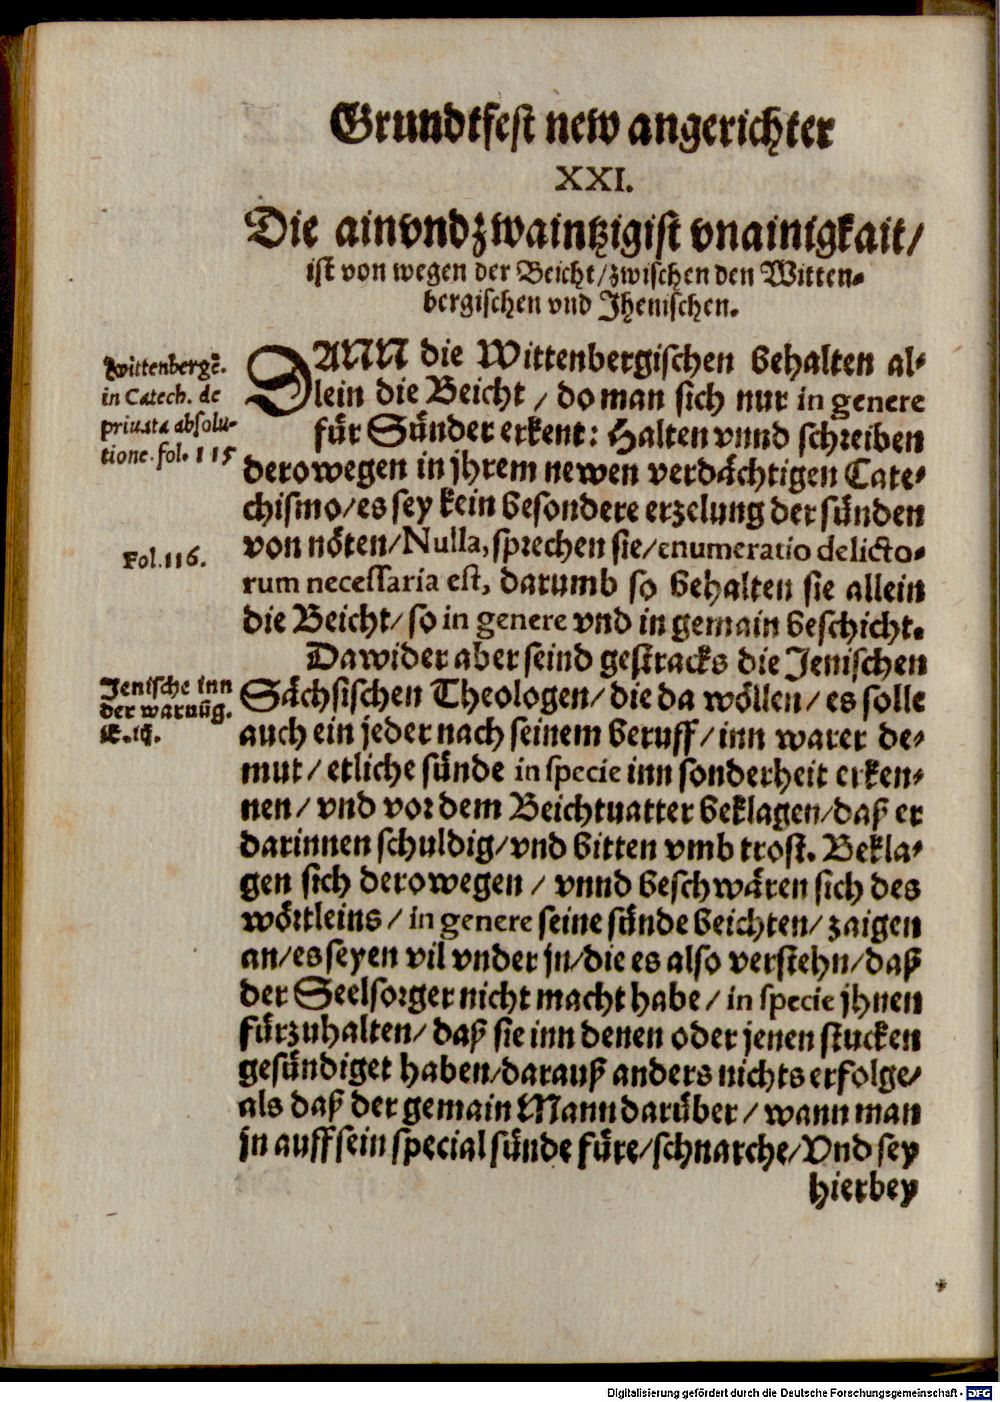 Grundtfest new angerichter
XXI.
Die ainvndzwaintzigist vnainigkait/
ist von wegen der Beicht/zwischen den Witten-
bergischen vnd Jhenischen.
DANN die Wittenbergischen behalten al-
lein die Beicht / do man sich nur in genere
für Sünder erkent: Halten vnnd schreiben
derowegen in jhrem newen verdächtigen Cate-
chismo/es sey kein besondere erzelung der sünden
von nöten/Nulla, sprechen sie/enumeratio delicto-
rum necessaria est, darumb so behalten sie allein
die Beicht/ so in genere vnd in gemain beschicht.
Dawider aber seind gestracks die Jenischen
Sächsischen Theologen/die da wöllen/ es solle
auch ein jeder nach seinem beruff/inn warer de-
mut/ etliche sünde in specie inn sonderheit erken-
nen/ vnd vor dem Beichtuatter beklagen/daß er
darinnen schuldig/vnd bitten vmb trost. Bekla-
gen sich derowegen / vnnd beschwären sich des
wörtleins / in genere seine sünde beichten/ zaigen
an/es seyen vil vnder jn/die es also verstehn/daß
der Seelsorger nicht macht habe / in specie jhnen
fürzuhalten/ daß sie inn denen oder jenen stucken
gesündiget haben/darauß anders nichts erfolge/
als daß der gemain Mann darüber / wann man
jn auff sein special sünde füre/schnarche/Vnd sey
hierbey
Wittenbergē.
in Catech. de
priuata absolu-
tione. fol. 115
Fol.116.
Jenische inn
der warnūg.
Digitalisierung gefördert durch die Deutsche Forschungsgemeinschaft - DFG